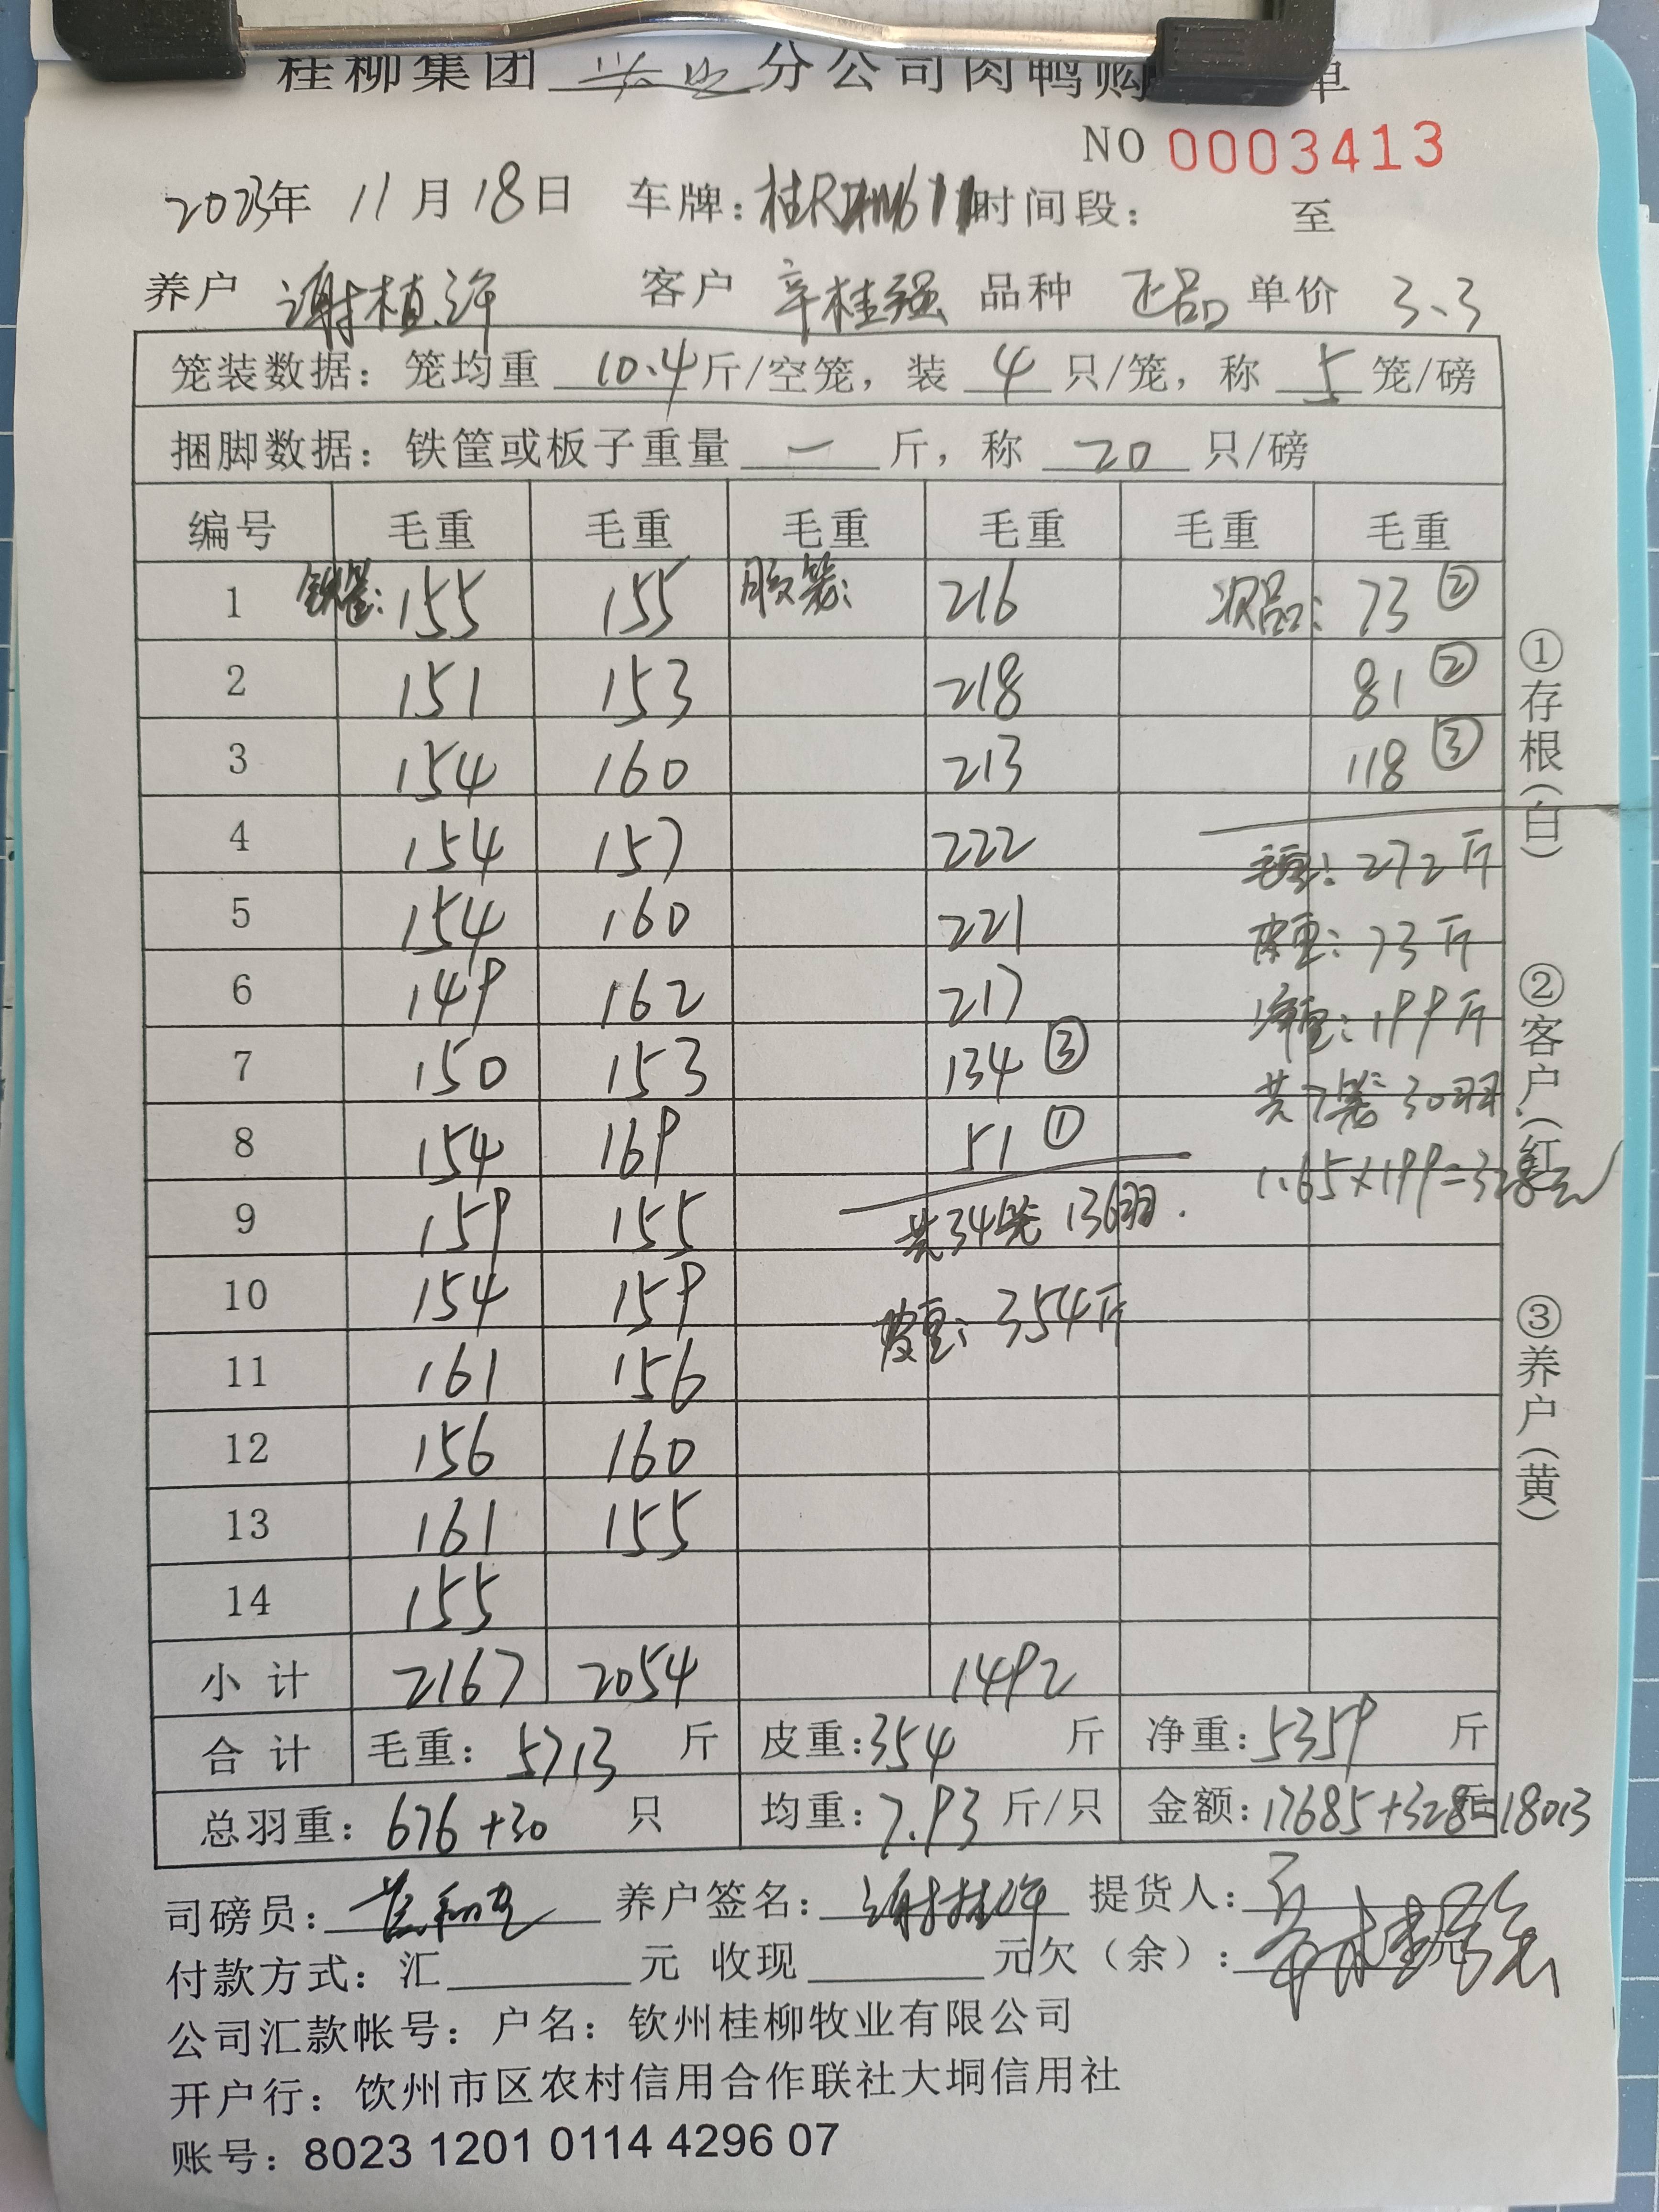 桂柳集团 分公司肉鸭购 单
NO 0003413
2023年 11月18日 车牌: 时间段: 至
养户 谢植许 客户 辛桂强 品种 正品 单价 3.3
笼装数据: 笼均重 10.4斤/空笼, 装 4 只/笼, 称 5 笼/磅
捆脚数据: 铁筐或板子重量 一 斤, 称 20 只/磅
编号 毛重 毛重 毛重 毛重 毛重 毛重
1 铁笼: 155 155 胶笼: 216 次品: 73 ②
2 151 153 218 81 ②
3 154 160 213 118 ③
4 154 157 222 毛重: 272斤
5 154 160 221 皮重: 73斤
6 149 162 217 净重: 199斤
7 150 153 134 ③ 共7笼 30羽.
8 154 169 51 ① 1.65×199=328元
9 159 155 共34笼 136羽.
10 154 159 皮重: 354斤
11 161 156
12 156 160
13 161 155
14 155
小计 2167 2054 1492
合计 毛重: 5713 斤 皮重: 354 斤 净重: 5359 斤
总羽重: 676+30 只 均重: 7.93 斤/只 金额: 17685+328=18013
司磅员: 养户签名: 谢植许 提货人: 辛桂强
付款方式: 汇 元 收现 元欠(余):
公司汇款帐号: 户名: 钦州桂柳牧业有限公司
开户行: 饮州市区农村信用合作联社大垌信用社
账号: 8023 1201 0114 4296 07
①存根(白)
②客户(红)
③养户(黄)